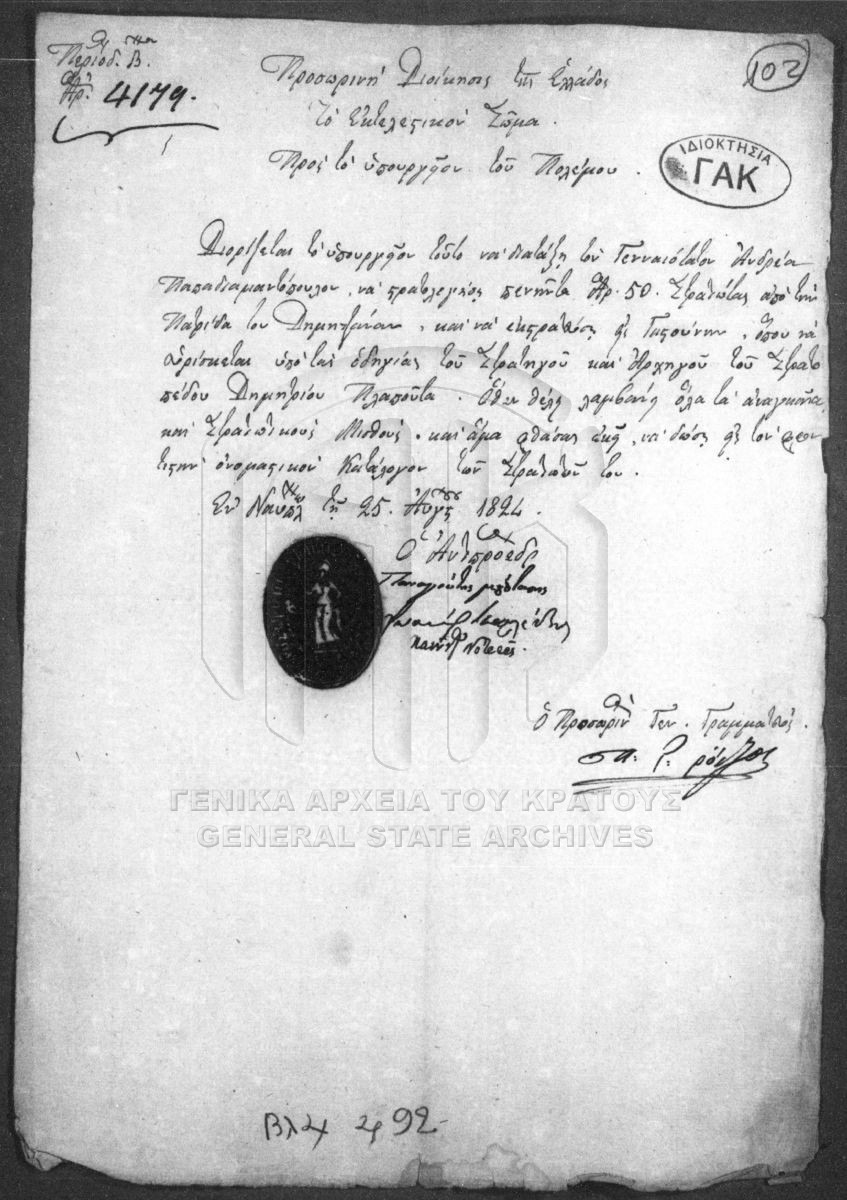 Περίοδ. Β.
Ἀρ. 4179.
102
Προσωρινὴ Διοίκησις τῆς Ἑλλάδος
Τὸ Ἐκτελεστικὸν Σῶμα.
Πρὸς τὸ ὑπουργεῖον τοῦ Πολέμου.
ΙΔΙΟΚΤΗΣΙΑ
ΓΑΚ
Διορίζεται τὸ ὑπουργεῖον τοῦτο νὰ διατάξῃ τὸν Γενναιότατον Ἀνδρέα
Παπαδιαμαντόπουλον, νὰ στρατολογήσῃ πενῆντα Ἀρ. 50. Στρατιώτας ἀπὸ τὴν
Πατρίδα του Δημητζάναν, καὶ νὰ ἐκστρατεύσῃ εἰς Γαστούνην, ὅπου νὰ
εὑρίσκεται ὑπὸ τὰς ὁδηγίας τοῦ Στρατηγοῦ καὶ Ἀρχηγοῦ τοῦ Στρατο
πέδου Δημητρίου Πλαπούτα. Ὅθεν θέλει λαμβάνῃ ὅλα τὰ ἀναγκαῖα
καὶ Στρατιωτικοὺς Μισθούς, καὶ ἅμα φθάσας ἐκεῖ, νὰ δώσῃ εἰς τὸν φρον
τιστὴν ὀνομαστικὸν Κατάλογον τῶν Στρατιωτῶν του.
Ἐν Ναυπλ τῇ 25. Αὐγς 1824.
Ὁ Ἀντιπρόεδρ
Παναγιώτης μπότασης
Πανούτζος Νοταρᾶς.
Ὁ Προσωριν Γεν. Γραμματεύς.
ΓΕΝΙΚΑ ΑΡΧΕΙΑ ΤΟΥ ΚΡΑΤΟΥΣ
GENERAL STATE ARCHIVES
92